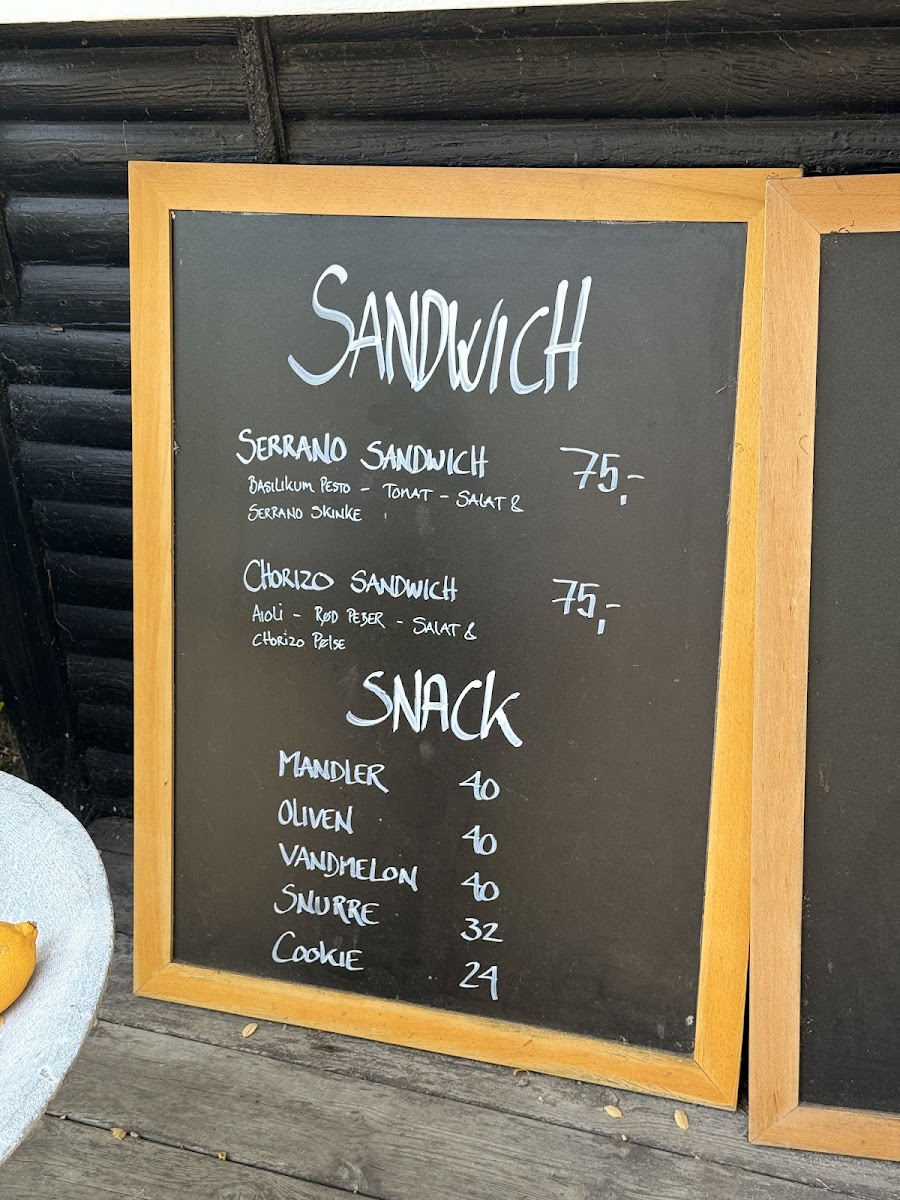 SANDWICH
SERRANO SANDWICH 75,-
BASILIKUM PESTO - TOMAT - SALAT &
SERRANO SKINKE
CHORIZO SANDWICH 75,-
AIOLI - RØD PEBER - SALAT &
CHORIZO PØLSE
SNACK
MANDLER 40
OLIVEN 40
VANDMELON 40
SNURRE 32
COOKIE 24